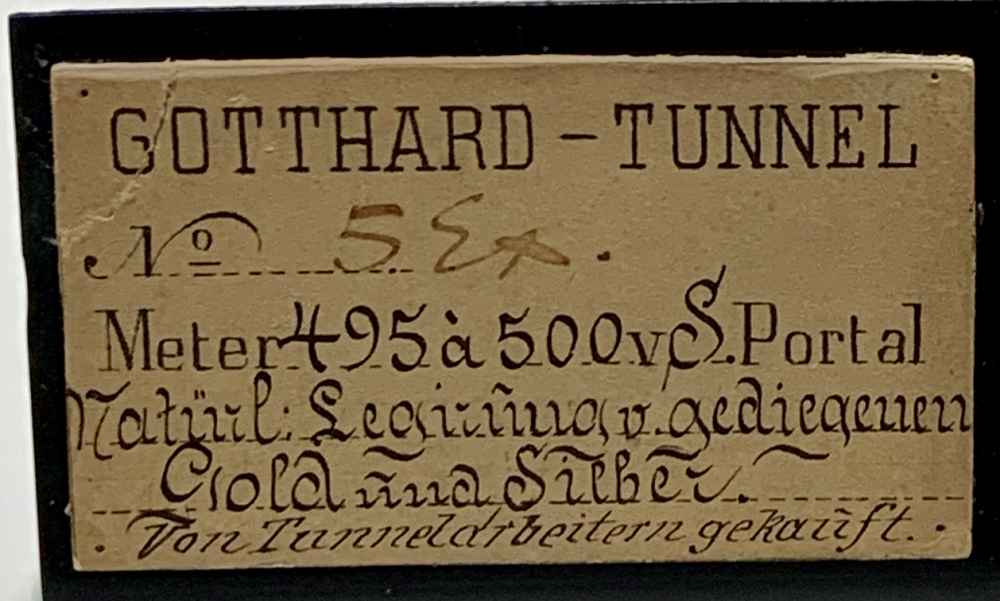 GOTTHARD-TUNNEL
No 5 Ex.
Meter 495 à 500 v S. Portal
Natürl: Legirung v. gediegenen
Gold und Silber.
Von Tunnelarbeitern gekauft.